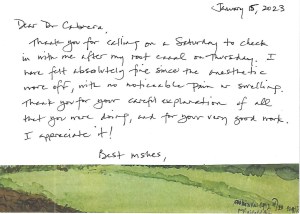 January 15, 2023
Dear Dr Cabrera:
Thank you for calling on a Saturday to check
in with me after my root canal on Thursday. I
have felt absolutely fine since the anesthetic
wore off, with no noticeable pain or swelling.
Thank you for your careful explanation of all
that you were doing, and for your very good work.
I appreciate it!
Best wishes,